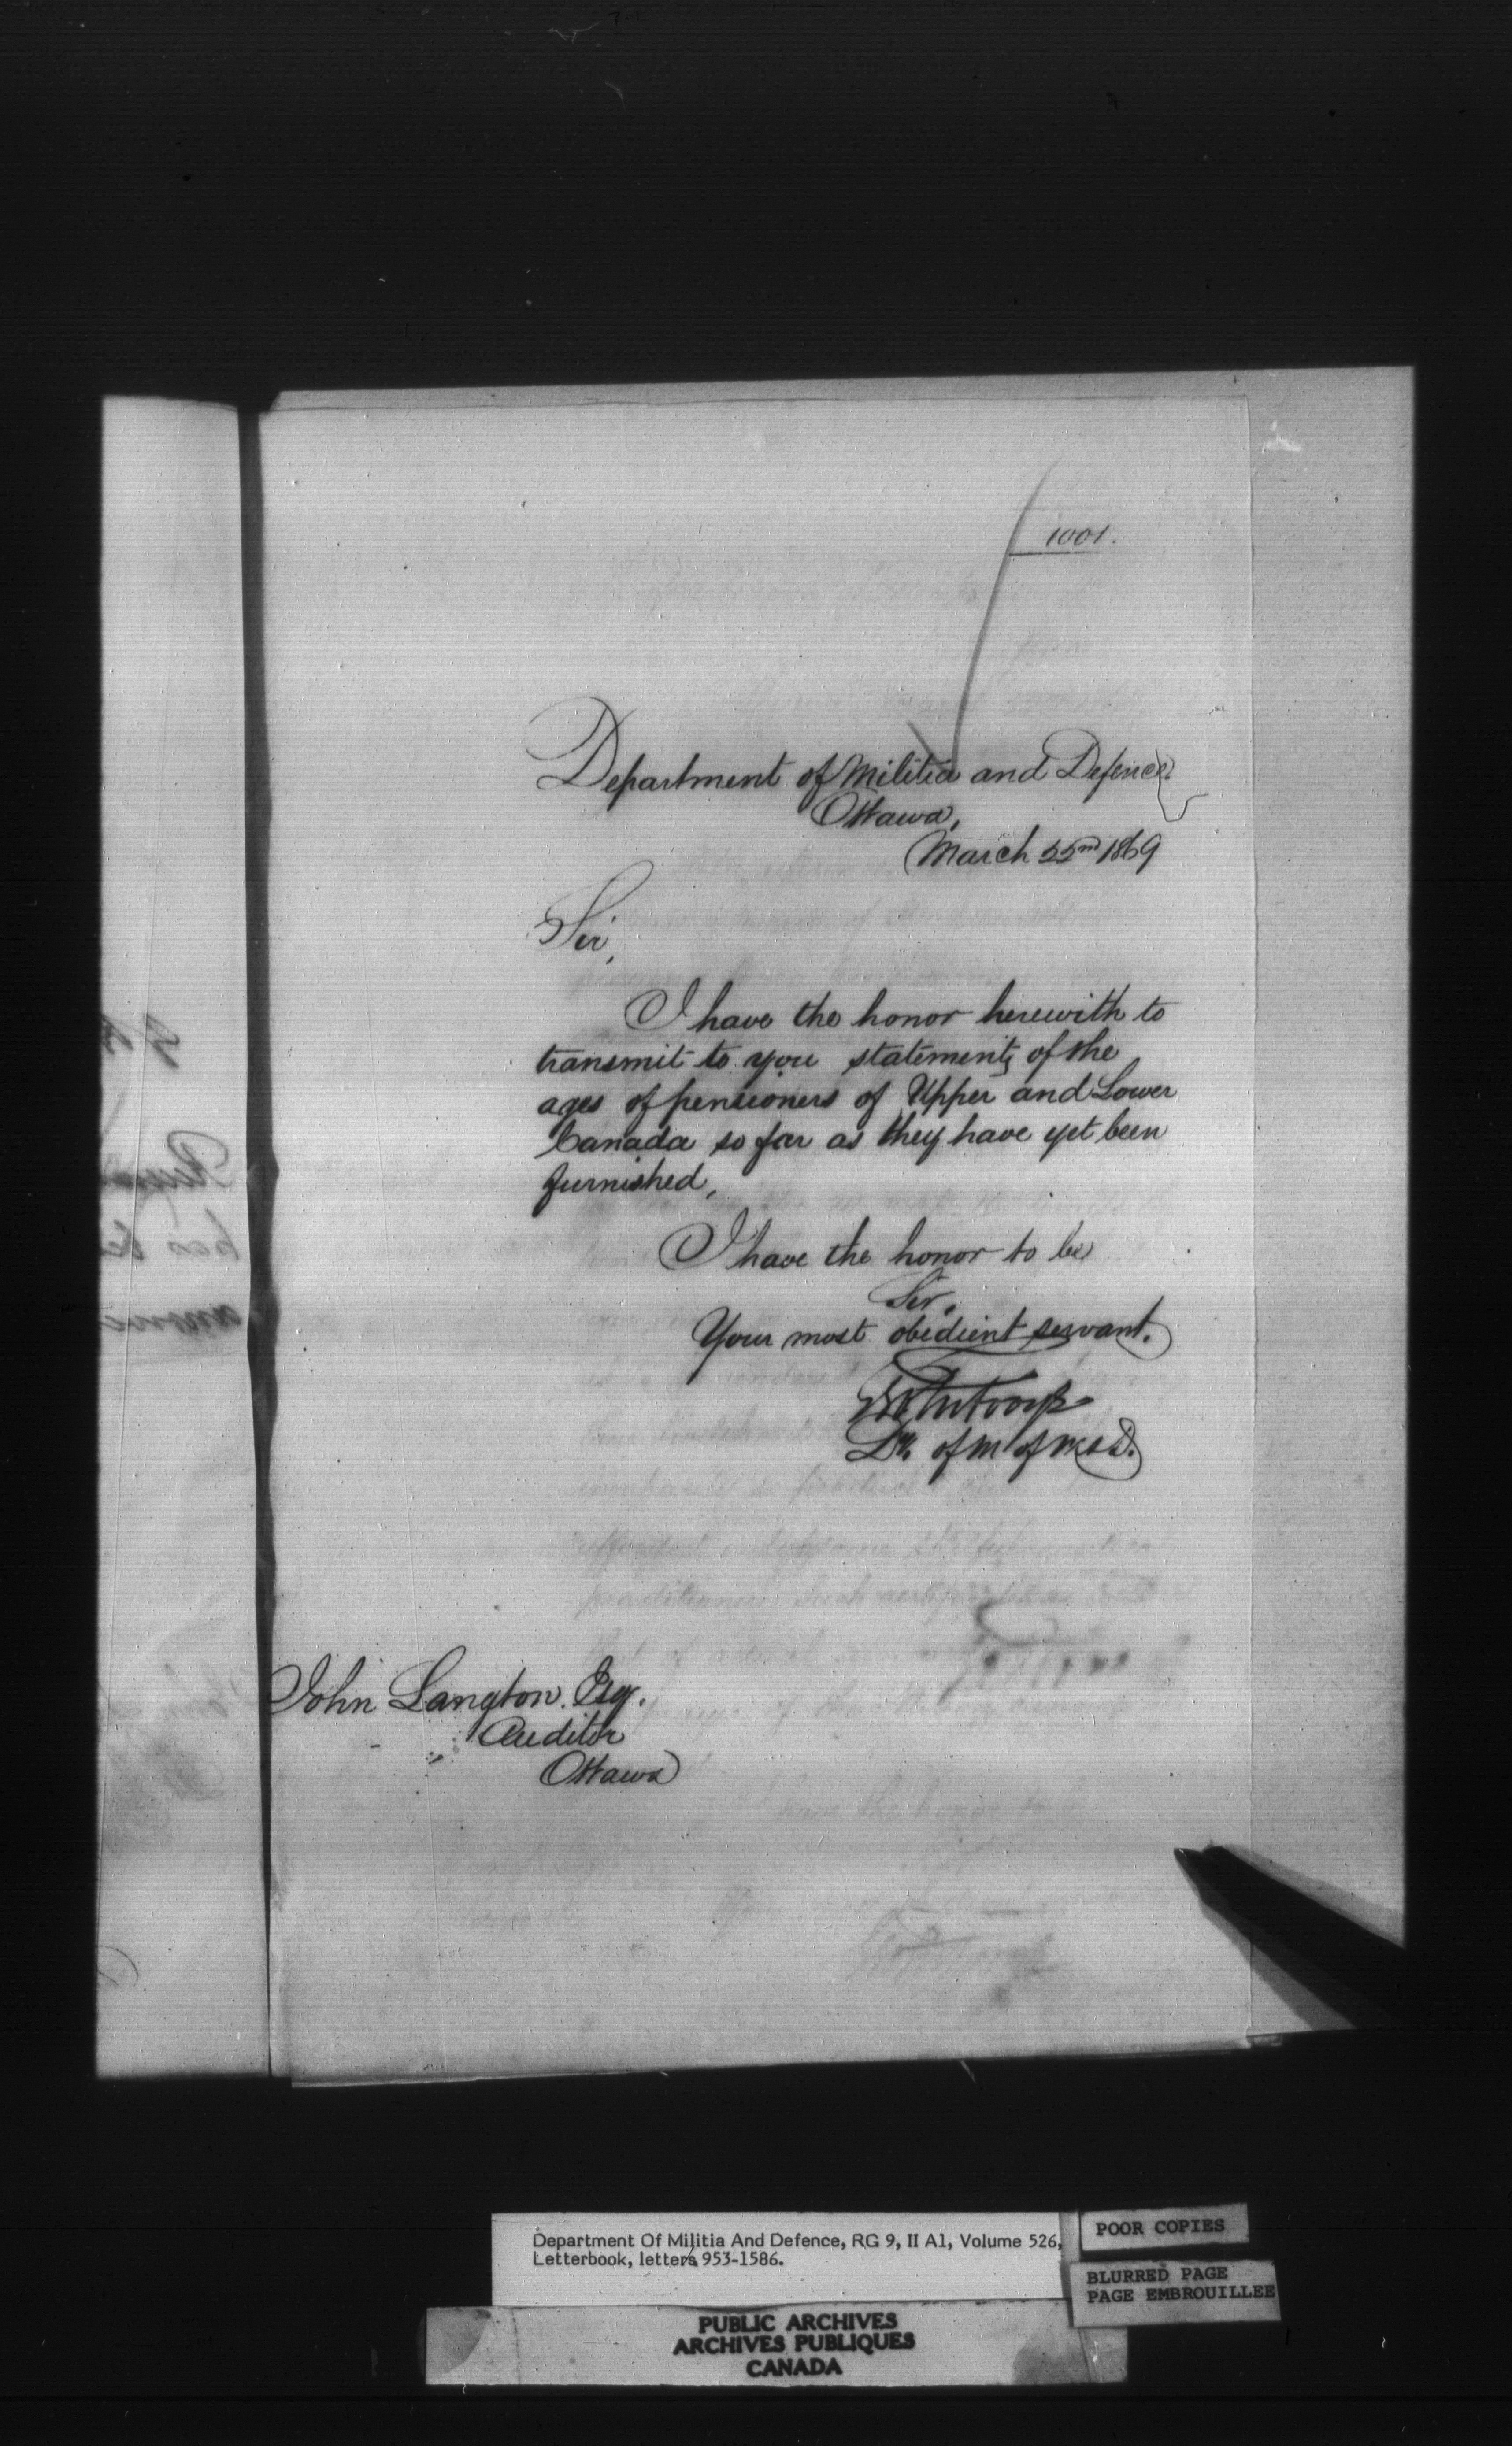 1001.
Department of Militia and Defence
Ottawa,
March 22nd 1869
Sir,
I have the honor herewith to
transmit to you statements of the
ages of pensioners of Upper and Lower
Canada so far as they have yet been
furnished,
I have the honor to be
Sir,
Your most obedient servant.
of M of M & D.
John Langton. Esqr.
Auditor
Ottawa
Department Of Militia And Defence, RG 9, II A1, Volume 526,
Letterbook, letters 953-1586.
POOR COPIES
BLURRED PAGE
PAGE EMBROUILLEE
PUBLIC ARCHIVES
ARCHIVES PUBLIQUES
CANADA